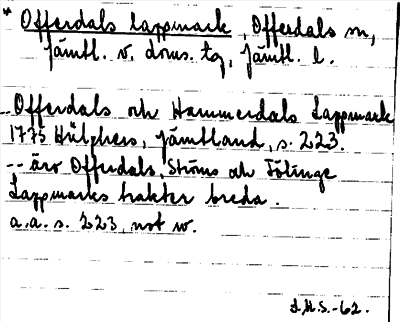 * Offerdals lappmark, Offerdals sn,
Jämtl. v. doms. tg, Jämtl. l.
..Offerdals och Hammerdals Lappmark
1775 Hülphers, Jämtland, s. 223.
-- äro Offerdals, Ströms och Fölinge
Lappmarks trakter breda.
a.a. s. 223, not w.
S.H.S.-62.